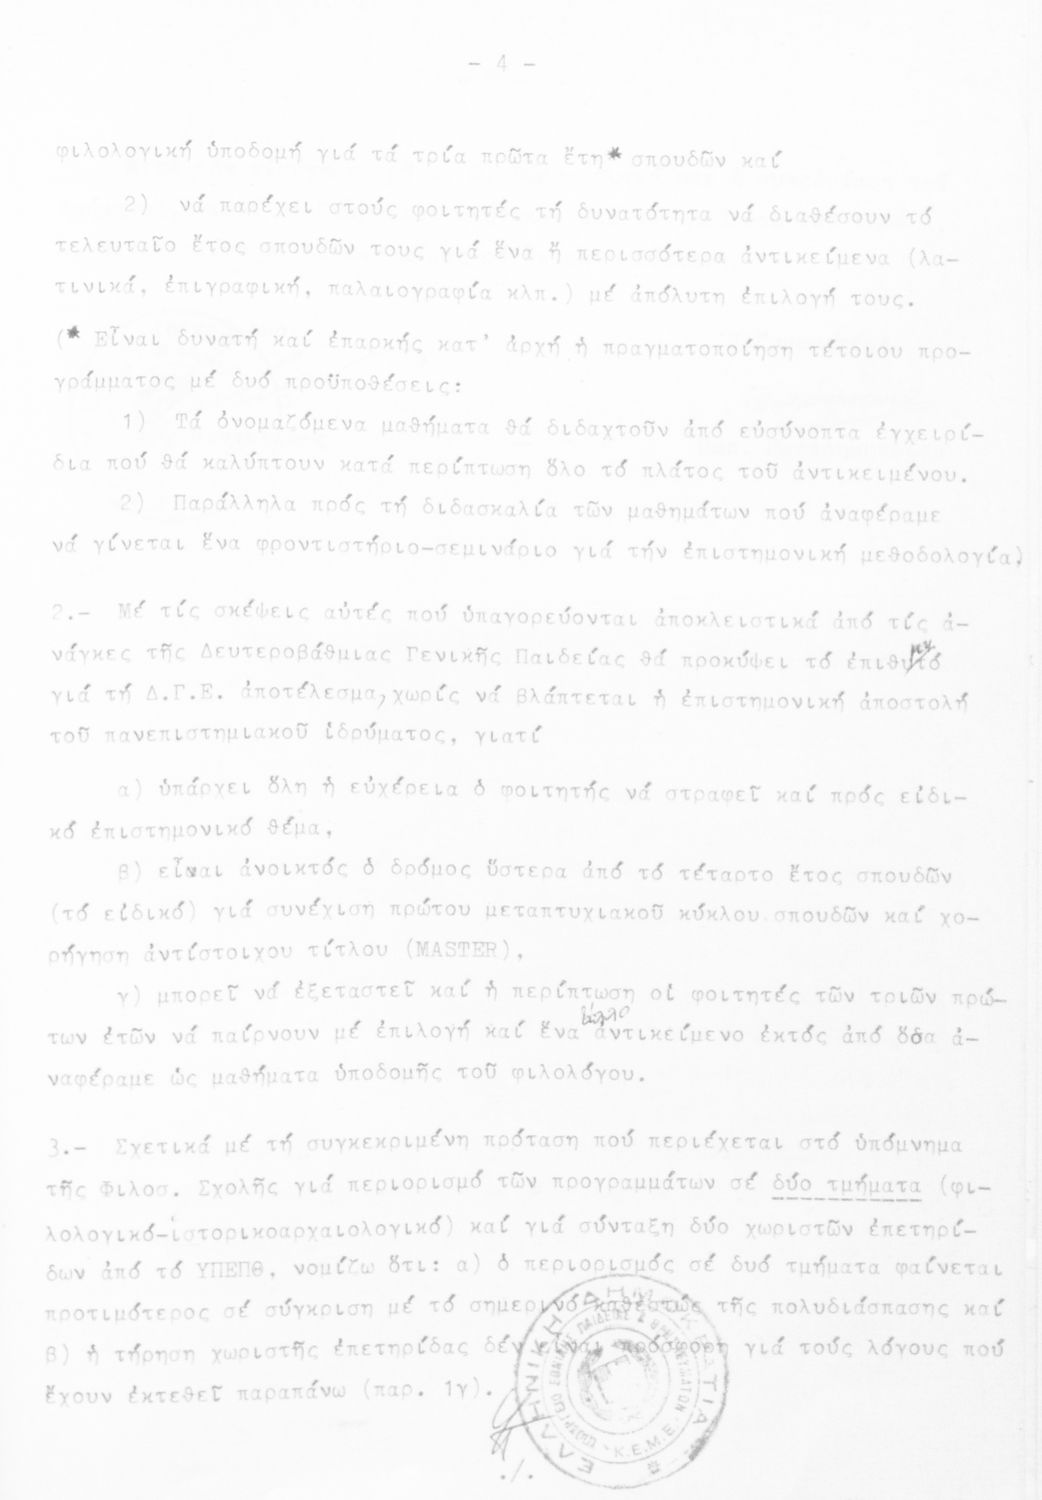 - 4 -
φιλολογική ὑποδομή γιά τά τρία πρῶτα ἔτη* σπουδῶν καί
2) νά παρέχει στούς φοιτητές τή δυνατότητα νά διαθέσουν τό
τελευταῖο ἔτος σπουδῶν τους γιά ἕνα ἤ περισσότερα ἀντικείμενα (λα-
τινικά, ἐπιγραφική, παλαιογραφία κλπ.) μέ ἀπόλυτη ἐπιλογή τους.
(* Εἶναι δυνατή καί ἐπαρκής κατ' ἀρχή ἡ πραγματοποίηση τέτοιου προ-
γράμματος μέ δυό προϋποθέσεις:
1) Τά ὀνομαζόμενα μαθήματα θά διδαχτοῦν ἀπό εὐσύνοπτα ἐγχειρί-
δια πού θά καλύπτουν κατά περίπτωση ὅλο τό πλάτος τοῦ ἀντικειμένου.
2) Παράλληλα πρός τή διδασκαλία τῶν μαθημάτων πού ἀναφέραμε
νά γίνεται ἕνα φροντιστήριο-σεμινάριο γιά τήν ἐπιστημονική μεθοδολογία)
2.- Μέ τίς σκέψεις αὐτές πού ὑπαγορεύονται ἀποκλειστικά ἀπό τίς ἀ-
νάγκες τῆς Δευτεροβάθμιας Γενικῆς Παιδείας θά προκύψει τό ἐπιθυμητό
γιά τή Δ.Γ.Ε. ἀποτέλεσμα, χωρίς νά βλάπτεται ἡ ἐπιστημονική ἀποστολή
τοῦ πανεπιστημιακοῦ ἱδρύματος, γιατί
α) ὑπάρχει ὅλη ἡ εὐχέρεια ὁ φοιτητής νά στραφεῖ καί πρός εἰδι-
κό ἐπιστημονικό θέμα,
β) εἶναι ἀνοικτός ὁ δρόμος ὕστερα ἀπό τό τέταρτο ἔτος σπουδῶν
(τό εἰδικό) γιά συνέχιση πρώτου μεταπτυχιακοῦ κύκλου σπουδῶν καί χο-
ρήγηση ἀντίστοιχου τίτλου (MASTER),
γ) μπορεῖ νά ἐξεταστεῖ καί ἡ περίπτωση οἱ φοιτητές τῶν τριῶν πρώ-
των ἐτῶν νά παίρνουν μέ ἐπιλογή καί ἕνα ἄλλο ἀντικείμενο ἐκτός ἀπό ὅσα ἀ-
ναφέραμε ὡς μαθήματα ὑποδομῆς τοῦ φιλολόγου.
3.- Σχετικά μέ τή συγκεκριμένη πρόταση πού περιέχεται στό ὑπόμνημα
τῆς Φιλοσ. Σχολῆς γιά περιορισμό τῶν προγραμμάτων σέ δύο τμήματα (φι-
λολογικό-ἱστορικοαρχαιολογικό) καί γιά σύνταξη δύο χωριστῶν ἐπετηρί-
δων ἀπό τό ΥΠΕΠΘ, νομίζω ὅτι: α) ὁ περιορισμός σέ δυό τμήματα φαίνεται
προτιμότερος σέ σύγκριση μέ τό σημερινό καθεστώς τῆς πολυδιάσπασης καί
β) ἡ τήρηση χωριστῆς ἐπετηρίδας δέν εἶναι πρόσφορη γιά τούς λόγους πού
ἔχουν ἐκτεθεῖ παραπάνω (παρ. 1γ).
ΕΛΛΗΝΙΚΗ ΔΗΜΟΚΡΑΤΙΑ
ΥΠΟΥΡΓΕΙΟ ΕΘΝΙΚΗΣ ΠΑΙΔΕΙΑΣ & ΘΡΗΣΚΕΥΜΑΤΩΝ
Κ.Ε.Μ.Ε.
./.